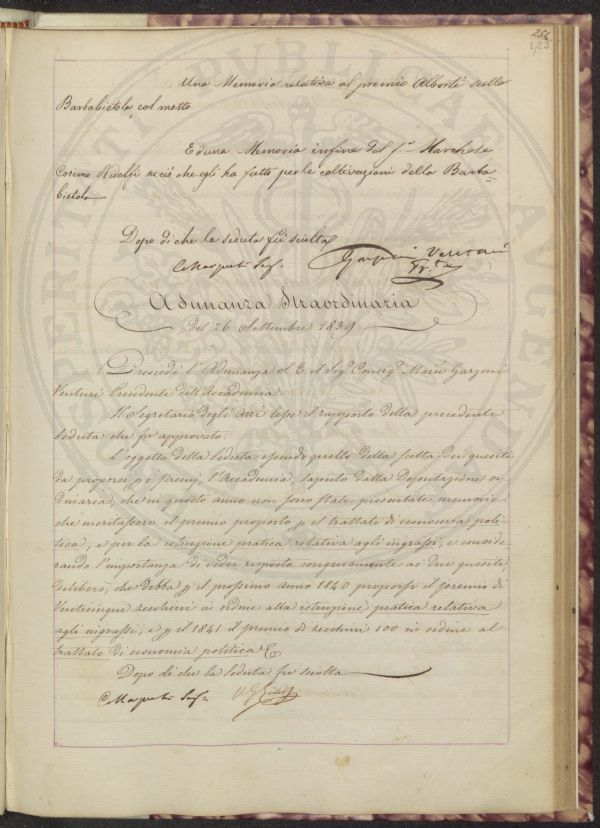 254
123
Una Memoria relativa al premio Alberti sulla
Barbabietola, col motto
Ed una Memoria infine del Sr. Marchese
Cosimo Ridolfi su ciò che egli ha fatto per la coltivazione della Barba
bietola
Dopo di che la seduta fu sciolta
Garzoni Venturi
Pr.te
Adunanza Straordinaria
Del 26 Settembre 1839
Presiedè l'Adunanza S. E. il Sig. Consigr. March. Garzoni
Venturi Presidente dell'Accademia
Il Segretario degli Atti lesse il rapporto della precedente
Seduta che fu approvato.
L'oggetto della Seduta essendo quello della scelta dei quesiti
da proporsi p i premj, l'Accademia, saputo dalla Deputazione or
dinaria, che in questo anno non sono state presentate memorie
che meritassero il premio proposto p il trattato di economia poli-
tica, e per la istruzione pratica relativa agli ingrassi, e conside-
rando l'importanza di veder risposto congruamente ai due quesiti,
deliberò, che debba p il prossimo anno 1840 proporsi il premio di
Venticinque zecchini in ordine alla istruzione pratica relativa
agli ingrassi, e p il 1841 il premio di zecchini 100 in ordine al
trattato di economia politica &
Dopo di che la Seduta fu sciolta
PROSPERITATI PUBLICAE AUGENDAE